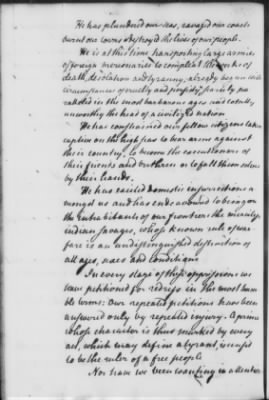 He has plundered our seas, ravaged our coasts
burnt our towns & destroyed the lives of our people.
He is at this time transporting large armies
of foreign mercenaries to compleat the works of
death, desolation and tyranny, already begun with
circumstances of cruelty and perfidy, scarcely pa
ralleled in the most barbarous ages and totally
unworthy the head of a civilized nation
He has constrained our fellow citizens taken
captive on the high seas to bear arms against
their country, to become the executioners of
their friends and brethren or to fall themselves
by their hands.
He has excited domestic insurrections a
mongst us and has endeavoured to bring on
the inhabitants of our frontiers the merciless
indian savages, whose known rule of war
fare is an undistinguished destruction of
all ages, sexes and conditions
In every stage of these oppressions we
have petitioned for redress in the most hum
ble terms: Our repeated petitions have been
answered only by repeated injury. A prince
whose character is thus marked by every
act, which may define a tyrant, is unfit
to be the ruler of a free people
Nor have we been wanting in attention